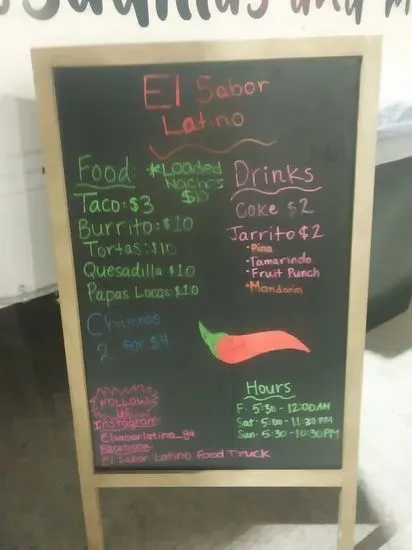 and
El Sabor
Latino
Food:
Taco: $3
Burrito: $10
Tortas: $10
Quesadilla $10
Papas Locas: $10
*Loaded
Nachos
$10
Drinks
Coke $2
Jarrito $2
• Pina
• Tamarindo
• Fruit Punch
• Mandarin
Churros
2 for $4
FOLLOW
US
Instagram:
Elsaborlatino_ga
Facebook:
El Sabor Latino Food Truck
Hours
F: 5:30 - 12:00AM
Sat: 5:00 - 11:30 PM
Sun: 5:30 - 10:30PM